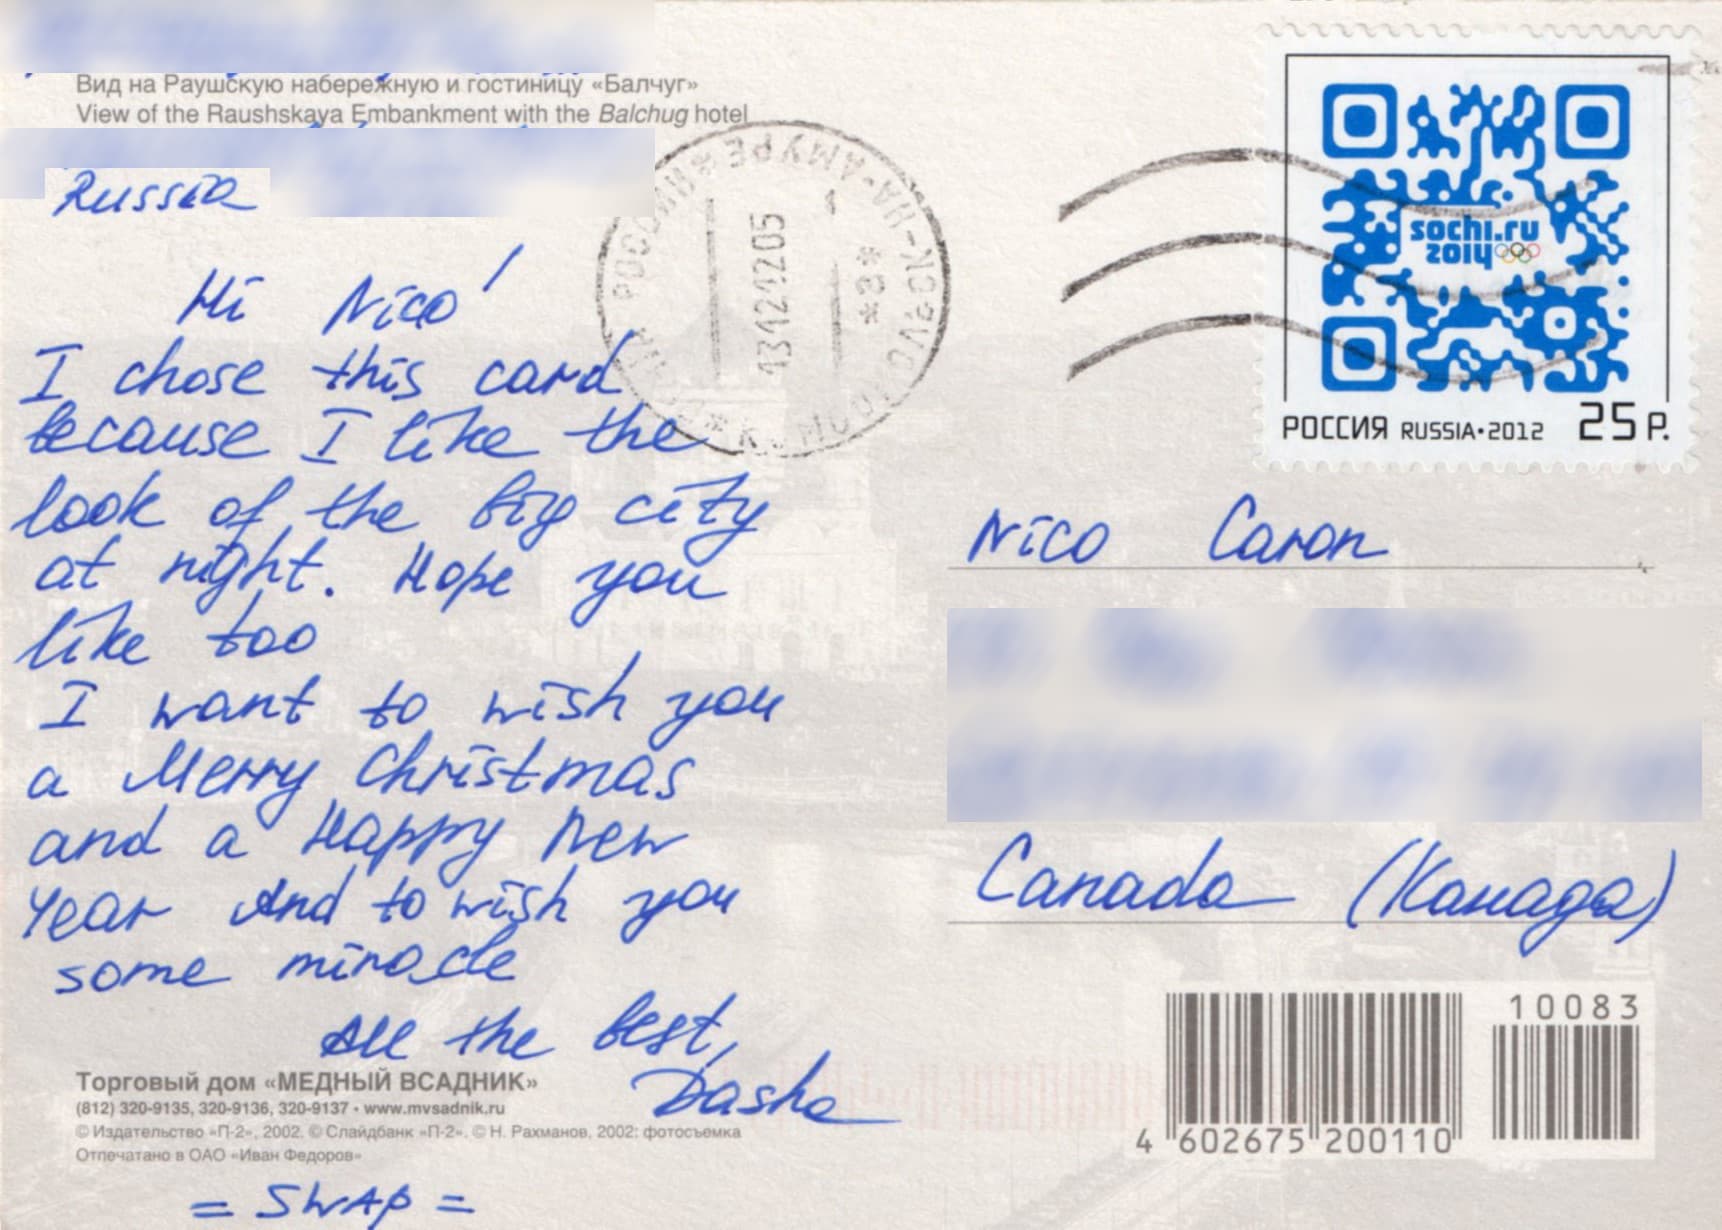 Вид на Раушскую набережную и гостиницу «Балчуг»
View of the Raushskaya Embankment with the Balchug hotel
Russia
Hi Nico!
I chose this card
because I like the
look of the big city
at night. Hope you
like too
I want to wish you
a Merry Christmas
and a Happy New
Year And to wish you
some miracle
All the best,
Dasha
Торговый дом «МЕДНЫЙ ВСАДНИК»
(812) 320-9135, 320-9136, 320-9137 • www.mvsadnik.ru
© Издательство «П-2», 2002. © Слайдбанк «П-2». © Н. Рахманов, 2002: фотосъемка
Отпечатано в ОАО «Иван Федоров»
= SWAP =
13121205
sochi.ru
2014
РОССИЯ RUSSIA•2012 25 Р.
Nico Caron
Canada (Канада)
10083
4 602675 200110